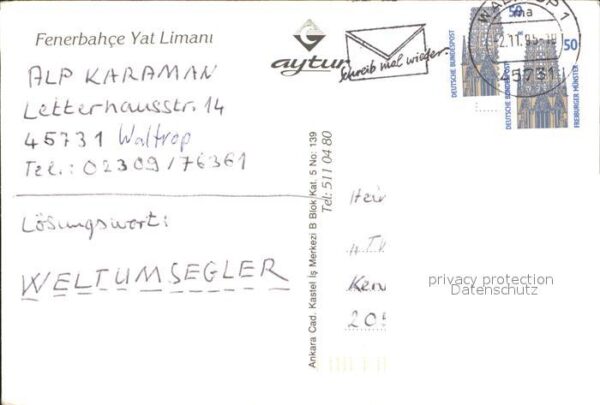 Fenerbahçe Yat Limanı
ALP KARAMAN
Letterhausstr. 14
45731 Waltrop
Tel.: 02309/76361
Lösungswort:
WELTUMSEGLER
aytur
Ankara Cad. Kastel İş Merkezi B Blok Kat. 5 No: 139
Tel: 511 04 80
schreib mal wieder.
WALTROP 1
ma
-2.11.95-18
45731
50
DEUTSCHE BUNDESPOST
50
DEUTSCHE BUNDESPOST
FREIBURGER MÜNSTER
privacy protection
Datenschutz